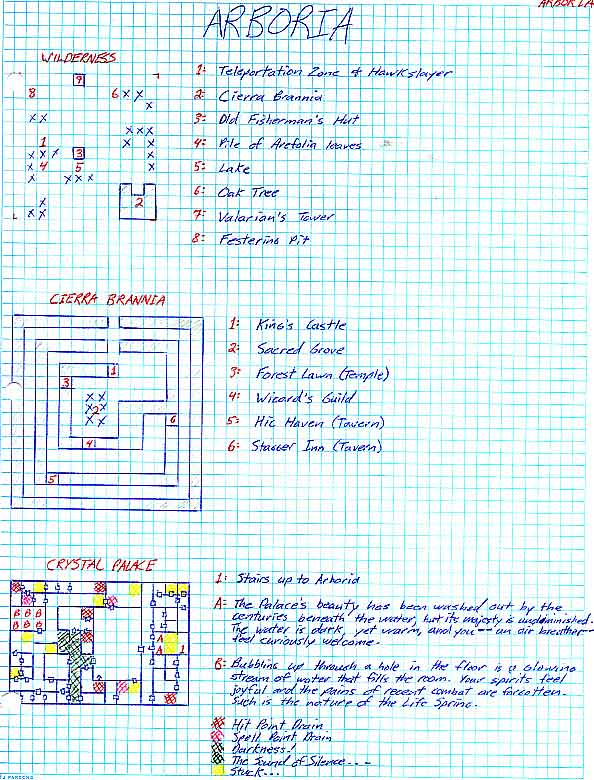 ARBORIA
ARBORIA
WILDERNESS
1: Teleportation Zone & Hawkslayer
2: Cierra Brannia
3: Old Fisherman's Hut
4: Pile of Arefolia leaves
5: Lake
6: Oak Tree
7: Valarian's Tower
8: Festering Pit
7
8
6 X X
X
X X
X X X
1
X X
X X X
3
X
X 4
5
X
X
X X X
X
X X
2
CIERRA BRANNIA
1: King's Castle
2: Sacred Grove
3: Forest Lawn (Temple)
4: Wizard's Guild
5: Hic Haven (Tavern)
6: Stagger Inn (Tavern)
1
3
X X
X 2 X
X X
6
4
5
CRYSTAL PALACE
1: Stairs up to Arboria
A: The Palace's beauty has been washed out by the
centuries beneath the water, but its majesty is undiminished.
The water is dark, yet warm, and you -- an air breather --
feel curiously welcome.
B: Bubbling up through a hole in the floor is a glowing
stream of water that fills the room. Your spirits feel
joyful and the pains of recent combat are forgotten.
Such is the nature of the Life Spring.
Hit Point Drain
Spell Point Drain
Darkness!
The Sound of Silence....
Stuck...
B B B
B B B
A
A 1
J PARSONS